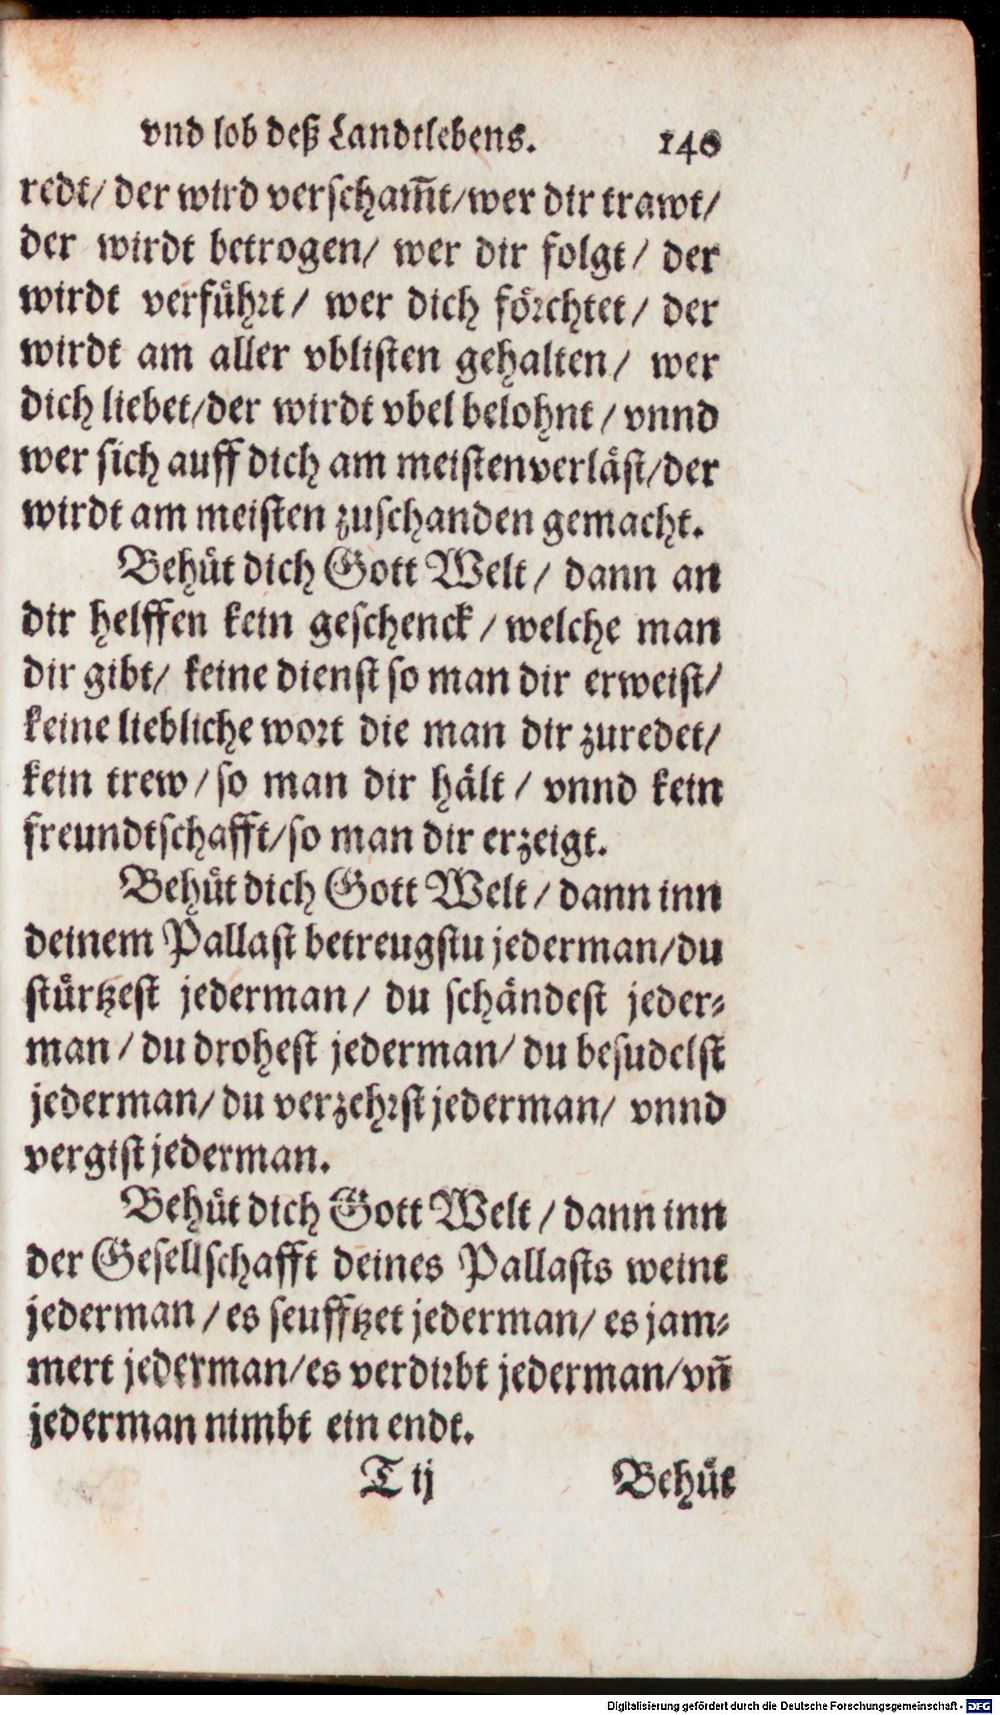 vnd lob deß Landtlebens. 140
redt/ der wird verscham̃t/wer dir trawt/
der wirdt betrogen/ wer dir folgt/ der
wirdt verführt/ wer dich förchtet/ der
wirdt am aller vblisten gehalten/ wer
dich liebet/der wirdt vbel belohnt/vnnd
wer sich auff dich am meisten verläst/der
wirdt am meisten zuschanden gemacht.
Behüt dich Gott Welt/ dann an
dir helffen kein geschenck/welche man
dir gibt/ keine dienst so man dir erweist/
keine liebliche wort die man dir zuredet/
kein trew/so man dir hält/ vnnd kein
freundtschafft/so man dir erzeigt.
Behüt dich Gott Welt/dann inn
deinem Pallast betreugstu jederman/du
stürtzest jederman/ du schändest jeder⸗
man/du drohest jederman/du besudelst
jederman/du verzehrst jederman/ vnnd
vergist jederman.
Behüt dich Gott Welt/dann inn
der Gesellschafft deines Pallasts weint
jederman/es seufftzet jederman/es jam⸗
mert jederman/es verdirbt jederman/vñ
jederman nimbt ein endt.
T ij Behüt
Digitalisierung gefördert durch die Deutsche Forschungsgemeinschaft - DFG